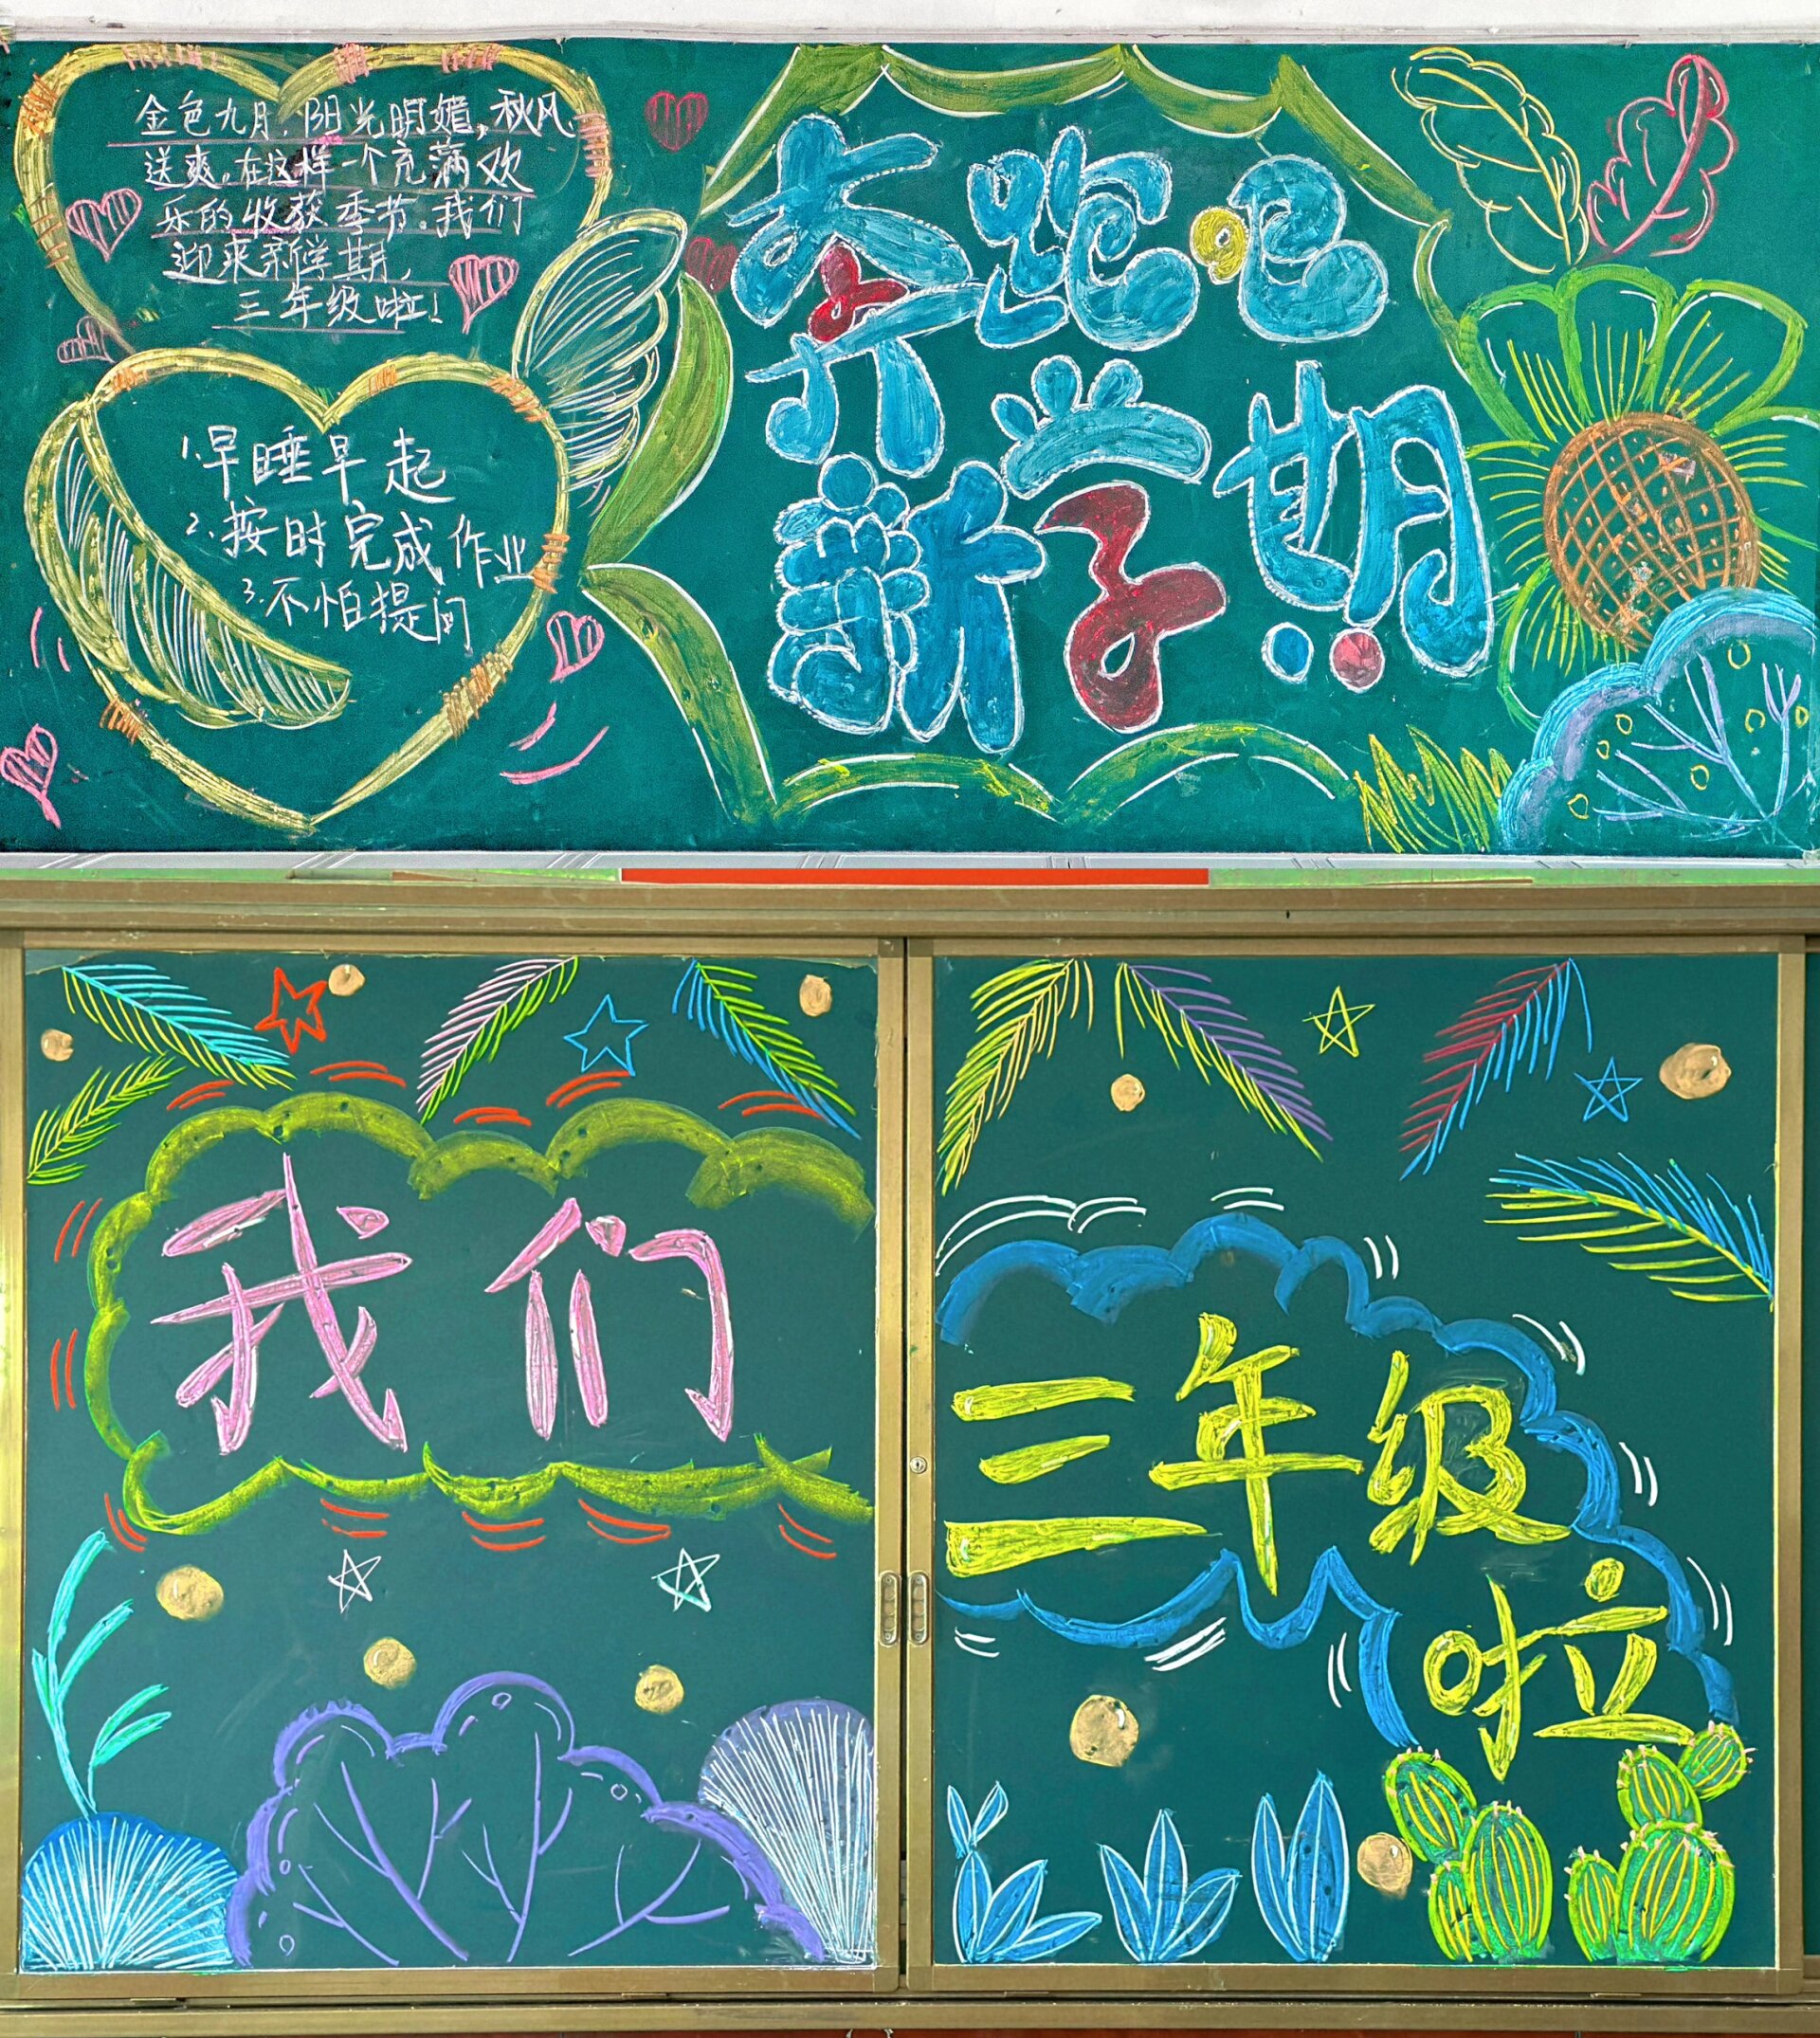 金色九月,阳光明媚,秋风
送爽。在这样一个充满欢
乐的收获季节。我们
迎来新学期,
三年级啦!
1.早睡早起
2.按时完成作业
3.不怕提问
奔跑吧
新学期
我们
三年级
啦